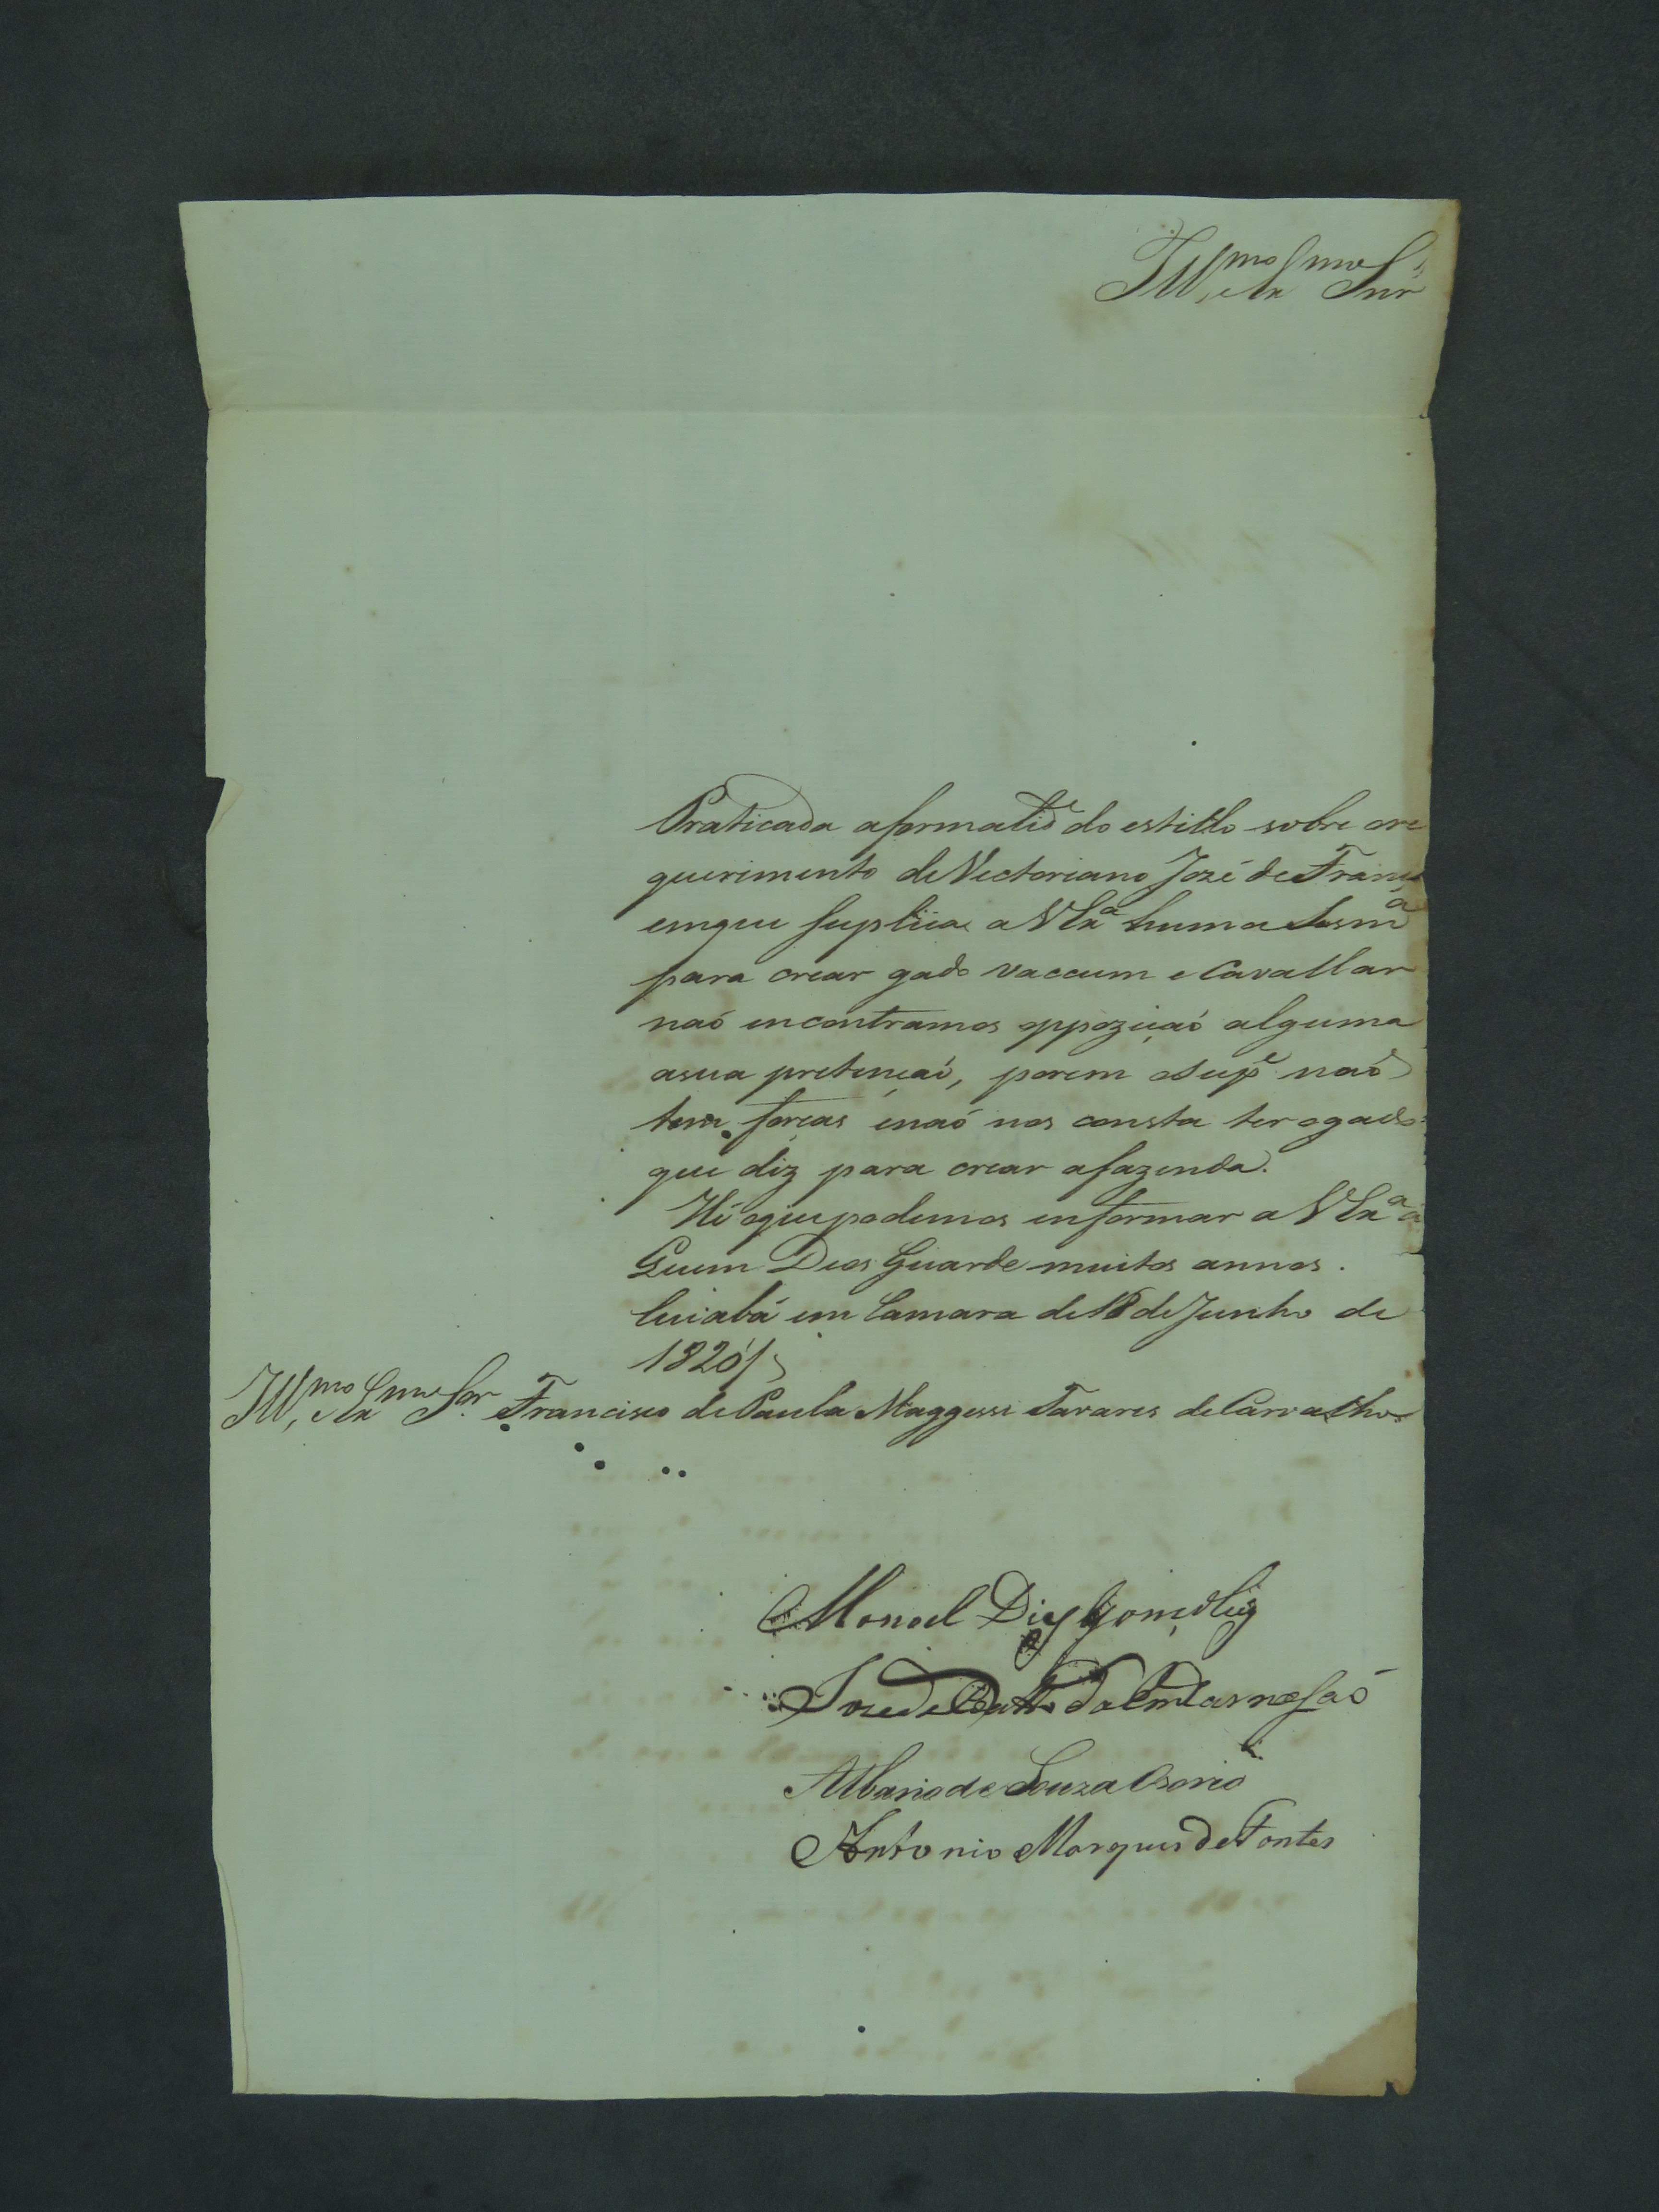 Ill.mo, e Ex.mo Snr
Praticada aformalid.e do estillo sobre ore
querimento de Victoriano José de França
emque suplica a VEx.a huma Sesm.a
para crear gado vaccum e Cavallar
naó encontramos oppoziçaó alguma
asua pretençaó, porem oSup.e naó
tem forças enaó nos consta ter ogado
que diz para crear afazenda.
Hé oquepodemos enformar a VEx.a a
Quem Deos Guarde muitos annos.
Cuiabá em Camara de 18 de Junho de
1820
Ill.mo, e Ex.mo Snr. Francisco de Paula Maggessi Tavares de Carvalho
Manoel Dias
Joze de da
Albano de Souza Osorio
Antonio Marques de Fontes